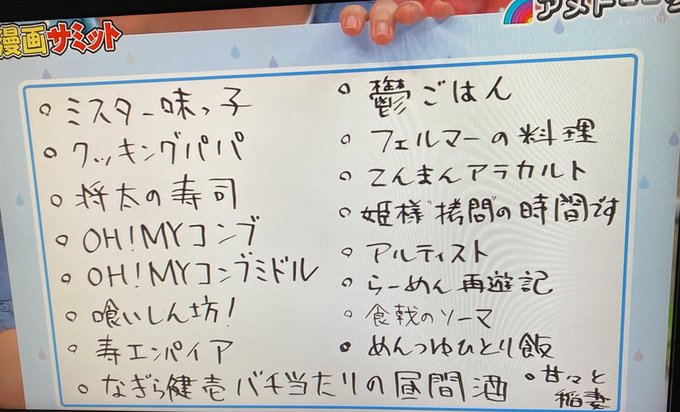 漫画サミット
アメトーーク
○ ミスター味っ子
○ クッキングパパ
○ 将太の寿司
○ OH!MYコンブ
○ OH!MYコンブミドル
○ 喰いしん坊!
○ 寿エンパイア
○ なぎら健壱バチ当たりの昼間酒
○ 鬱ごはん
○ フェルマーの料理
○ てんまんアラカルト
○ 姫様"拷問"の時間です
○ アルティスト
○ らーめん再遊記
○ 食戟のソーマ
○ めんつゆひとり飯
○ 甘々と
稲妻